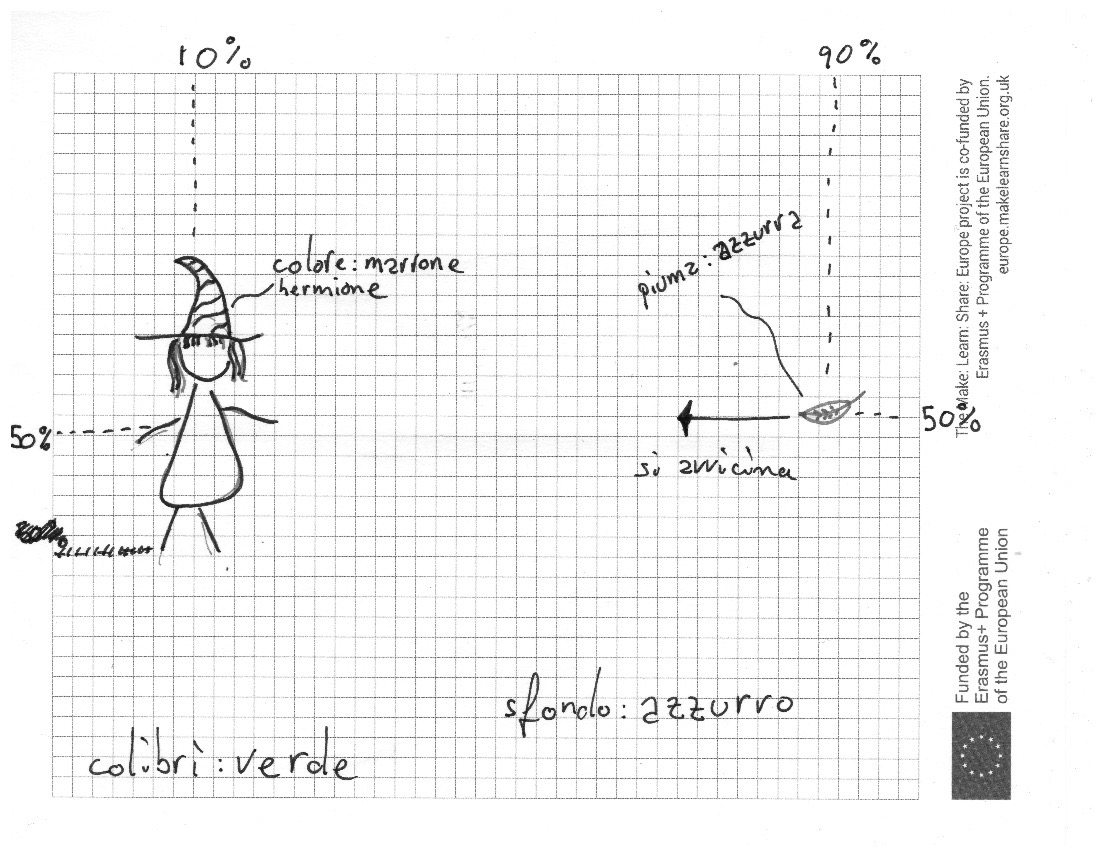 10%
90%
colore: marrone
hermione
piuma: azzurra
50%
50%
si avvicina
sfondo: azzurro
colibrì: verde
The Make: Learn: Share: Europe project is co-funded by
Erasmus + Programme of the European Union.
europe.makelearnshare.org.uk
Funded by the
Erasmus+ Programme
of the European Union